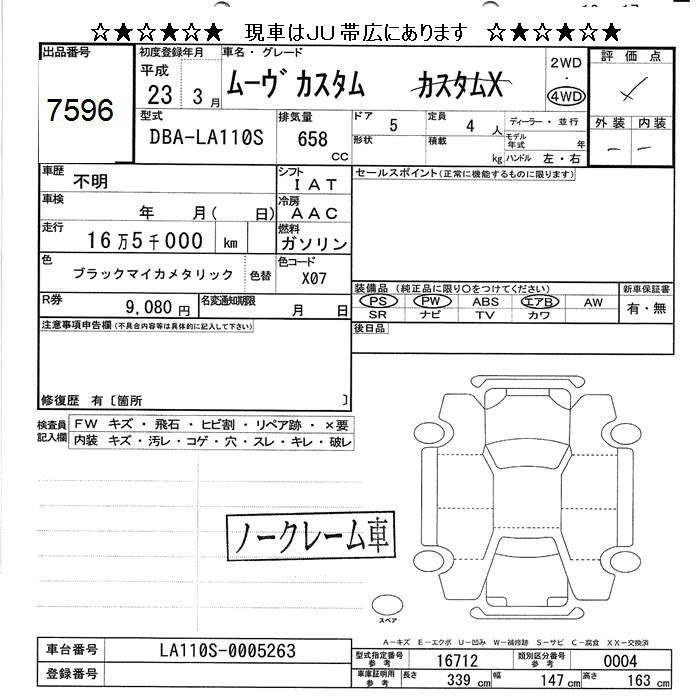 ☆★☆★☆★ 現車はJU帯広にあります ☆★☆★☆★
出品番号 初度登録年月 車名・グレード 2WD 評価点
7596 平成 23 3月 ムーヴ カスタム カスタムX ・ 4WD
型式 排気量 ドア 5 定員 4 人 ディーラー・並行 外装 内装
DBA-LA110S 658 cc 形状 積載 kg モデル年式 年 ハンドル 左・右 - -
車歴 不明 シフト IAT セールスポイント(正常に機能するものに限ります)
車検 年 月( 日) 冷房 AAC
走行 16万5千000 km 燃料 ガソリン
色 ブラックマイカメタリック 色替 色コード X07
装備品(純正品に限り○をつけてください) 新車保証書
R券 9,080円 名変通知期限 月 日 PS PW ABS エアB AW 有・無
SR ナビ TV カワ
注意事項申告欄(不具合内容等は具体的に記入して下さい) 後日品
修復歴 有〔箇所 〕
検査員記入欄 FW キズ・飛石・ヒビ割・リペア跡・×要
内装 キズ・汚レ・コゲ・穴・スレ・キレ・破レ
ノークレーム車
スペア
A-キズ E-エクボ U-凹み W-補修跡 S-サビ C-腐食 XX-交換済
車台番号 LA110S-0005263 型式指定番号 参考 16712 類別区分番号 参考 0004
登録番号 車庫証明用 参考 長さ 339 cm 幅 147 cm 高さ 163 cm